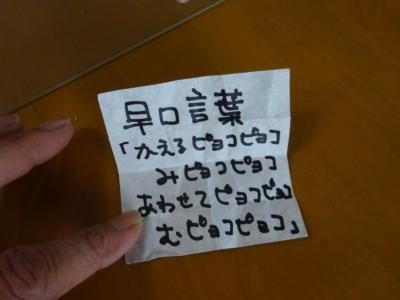 早口言葉
「かえるピョコピョコ
みピョコピョコ
あわせてピョコピョコ
むピョコピョコ」